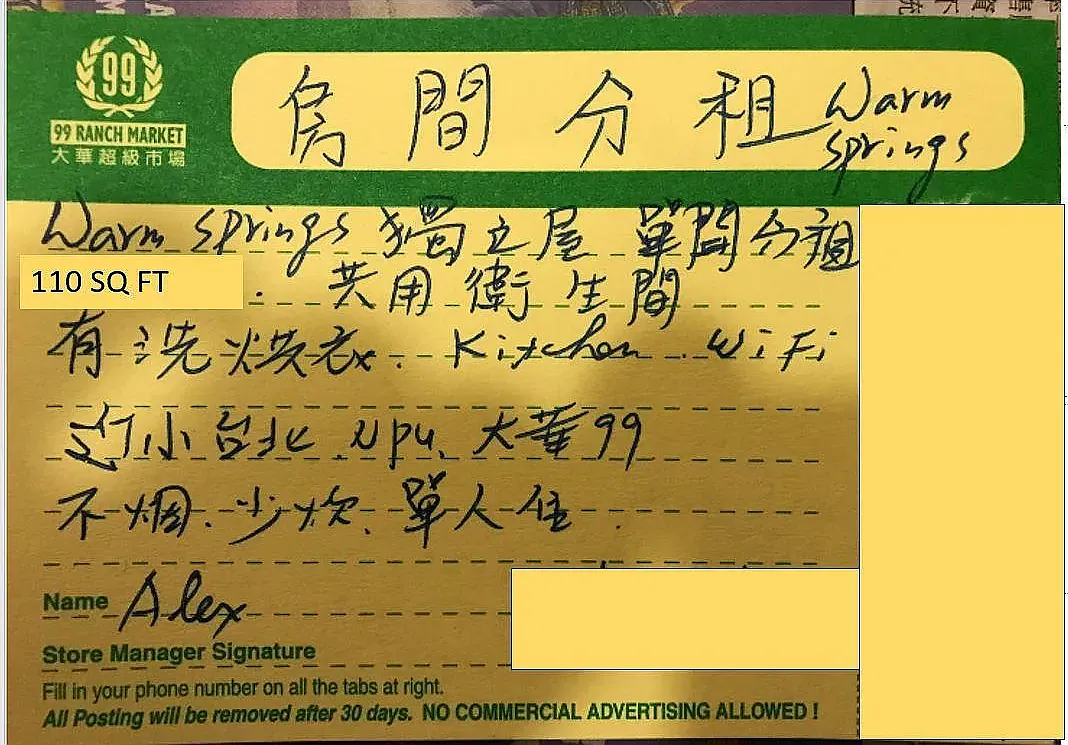 99
99 RANCH MARKET
大華超級市場
房間分租 Warm
springs
Warm springs 獨立屋 單間分租
110 SQ FT . 共用衛生間
有洗烘衣. Kitchen. WiFi
近小台北. npu、大華99
不烟、少炊、單人住.
Name Alex
Store Manager Signature
Fill in your phone number on all the tabs at right.
All Posting will be removed after 30 days. NO COMMERCIAL ADVERTISING ALLOWED !